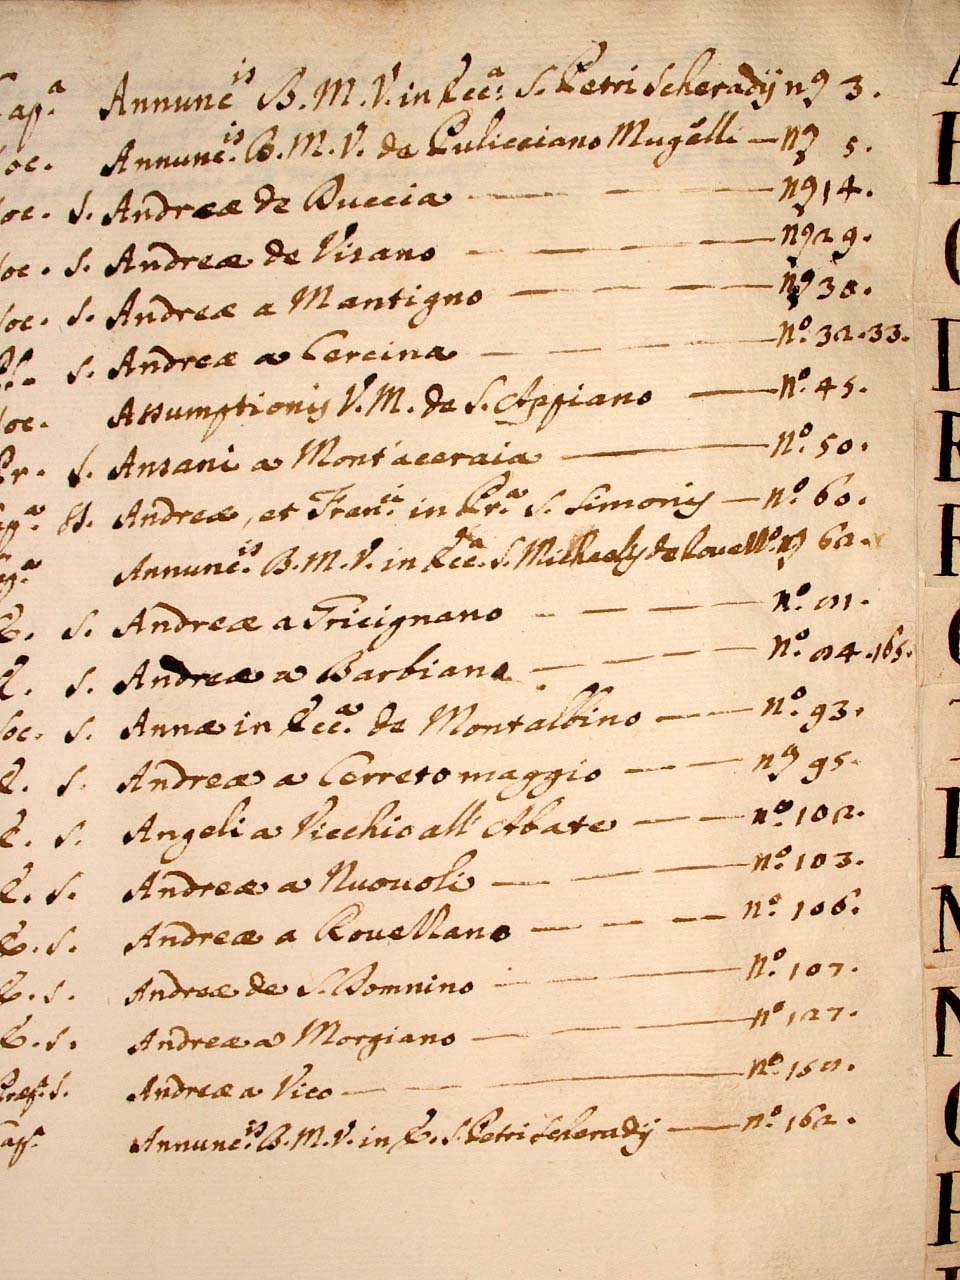 Cap.ª Annunc.is B. M. V. in Ecc.ª S. Petri Scheradij nº 3.
Soc. Annunc.is B. M. V. de Puliciano Mugelli — nº 5.
Soc. S. Andreæ de Buccia — nº 14.
Soc. S. Andreæ de Visano — nº 29.
Soc. S. Andreæ a Mantigno — nº 30.
S. Andreæ a Cercina — nº. 32.33.
Soc. Assumptionis V. M. de S. Appiano — nº. 45.
Pr. S. Ansani a Mont'aceraia — nº. 50.
SS. Andreæ, et Fran.ci in Pr.ª S. Simonis — nº. 60.
Annunc.is B. M. V. in Ecc.ª S. Michaelis de nº 62.
E. S. Andreæ a Gricignano — nº. 81.
E. S. Andreæ a Barbiana — nº. 84.165.
Soc. S. Annæ in Ecc.ª de Montalbino — nº. 93.
E. S. Andreæ a Cerreto maggio — nº 95.
E. S. Angeli a Vicchio all' Abate — nº. 102.
E. S. Andreæ a Nuouoli — nº. 103.
E. S. Andreæ a Rouellano — nº. 106.
E. S. Andreæ de S. Domnino — nº. 107.
E. S. Andreæ a Morgiano — nº. 127.
S. Andreæ a Vico — nº. 158.
Cap.ª Annunc.is B. M. V. in E. S. Petri Scheradij — nº. 162.